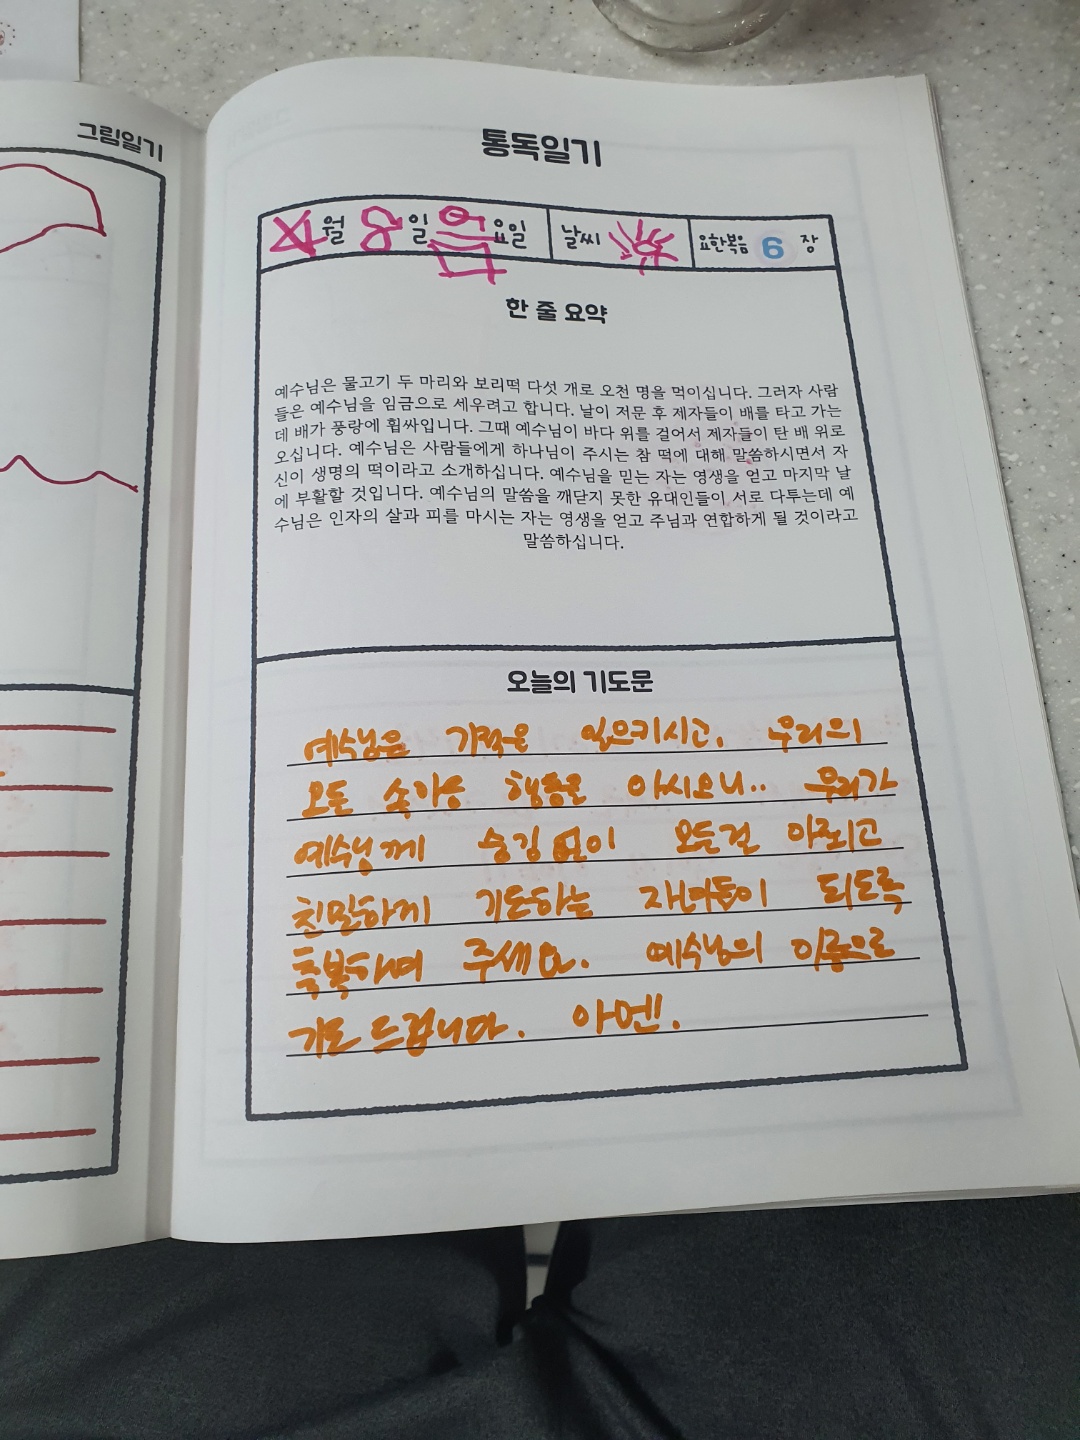 그림일기
통독일기
월 8일 목요일 날씨 요한복음 6 장
한 줄 요약
예수님은 물고기 두 마리와 보리떡 다섯 개로 오천 명을 먹이십니다. 그러자 사람
들은 예수님을 임금으로 세우려고 합니다. 날이 저문 후 제자들이 배를 타고 가는
데 배가 풍랑에 휩싸입니다. 그때 예수님이 바다 위를 걸어서 제자들이 탄 배 위로
오십니다. 예수님은 사람들에게 하나님이 주시는 참 떡에 대해 말씀하시면서 자
신이 생명의 떡이라고 소개하십니다. 예수님을 믿는 자는 영생을 얻고 마지막 날
에 부활할 것입니다. 예수님의 말씀을 깨닫지 못한 유대인들이 서로 다투는데 예
수님은 인자의 살과 피를 마시는 자는 영생을 얻고 주님과 연합하게 될 것이라고
말씀하십니다.
오늘의 기도문
예수님은 기적을 일으키시고, 우리의
모든 속마음 행동을 아시오니.. 우리가
예수님께 숨김 없이 모든걸 아뢰고
친밀하게 기도하는 자녀들이 되도록
축복하여 주세요. 예수님의 이름으로
기도 드립니다. 아멘.